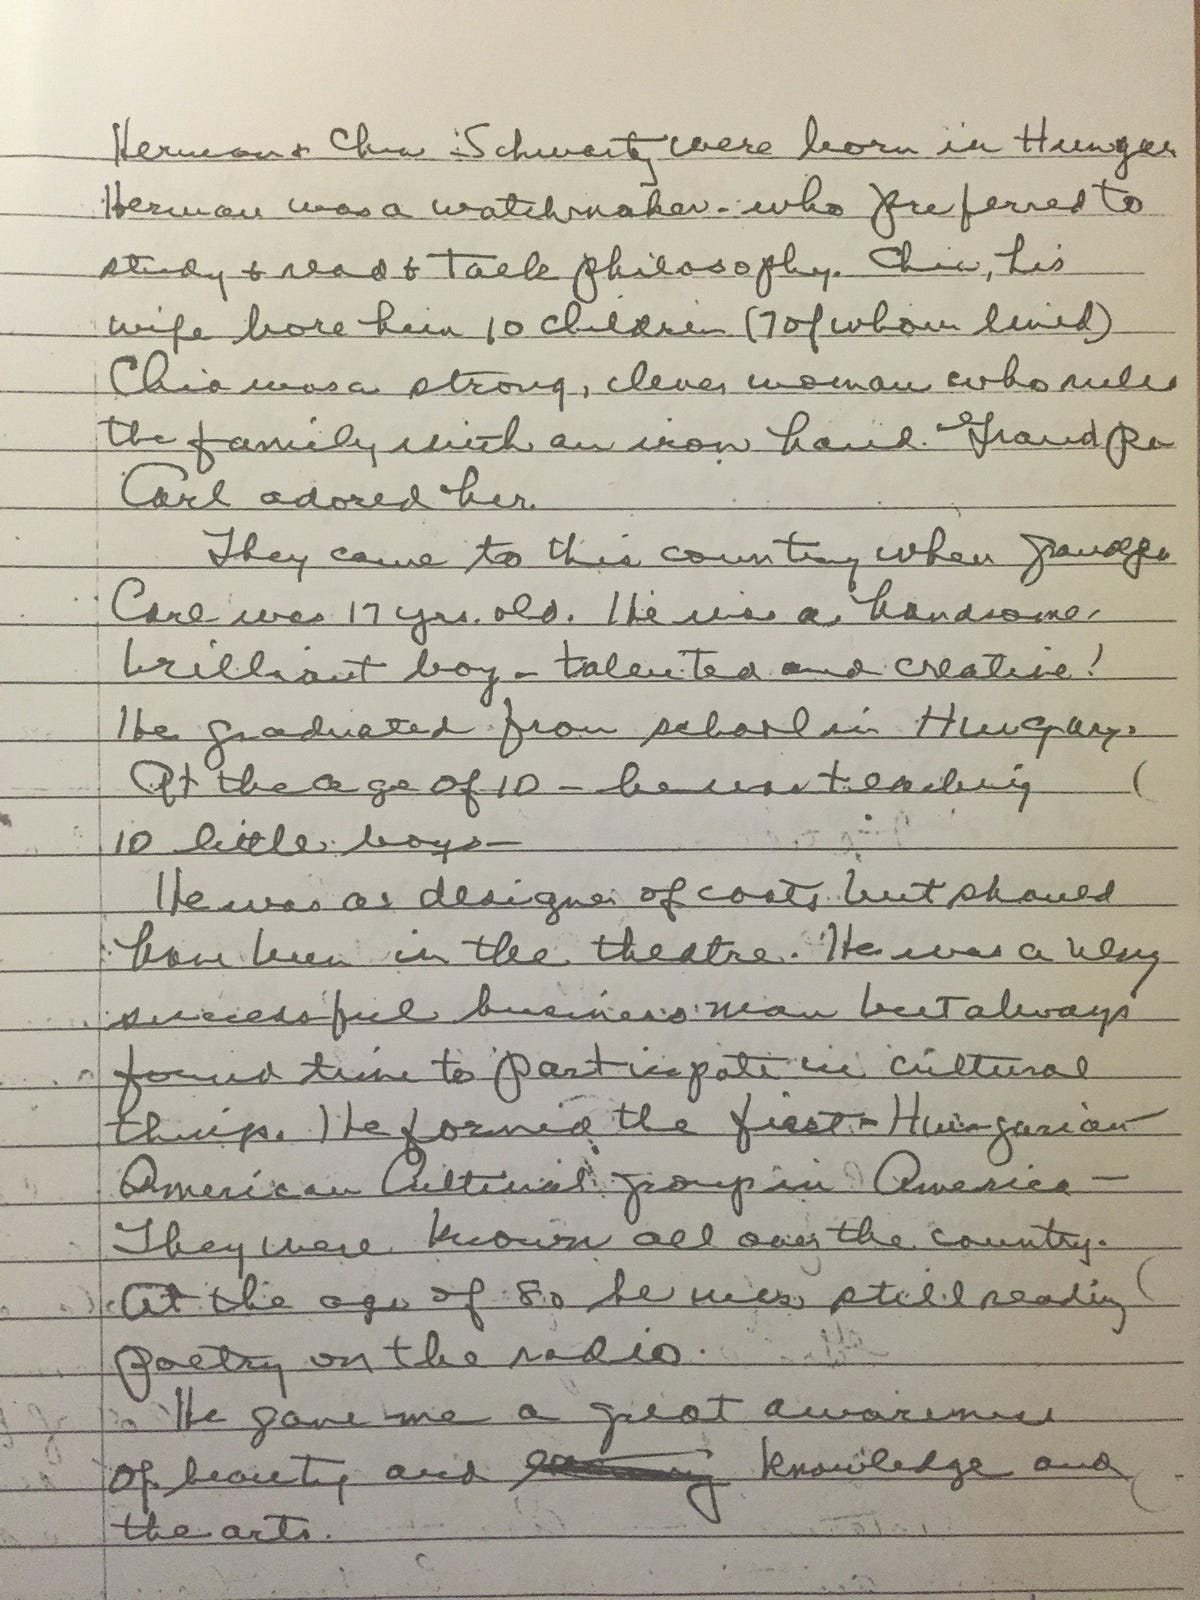 Herman & Chia Schwartz were born in Hungar
Herman was a watchmaker - who preferred to
study & read & talk philosophy. Chia, his
wife bore him 10 children (7 of whom lived)
Chia was a strong, clever woman who rules
the family with an iron hand. Grandpa
Carl adored her.
They came to this country when grandpa
Carl was 17 yrs. old. He was a handsome,
brilliant boy - talented and creative!
He graduated from school in Hungary.
At the age of 10 - he was teaching
10 little boys -
He was a designer of coats but should
have been in the theatre. He was a very
successful business man but always
found time to participate in cultural
things. He formed the first - Hungarian
American Cultural group in America -
They were known all over the country.
At the age of 80 he was still reading
poetry on the radio.
He gave me a great awareness
of beauty and knowledge and
the arts.